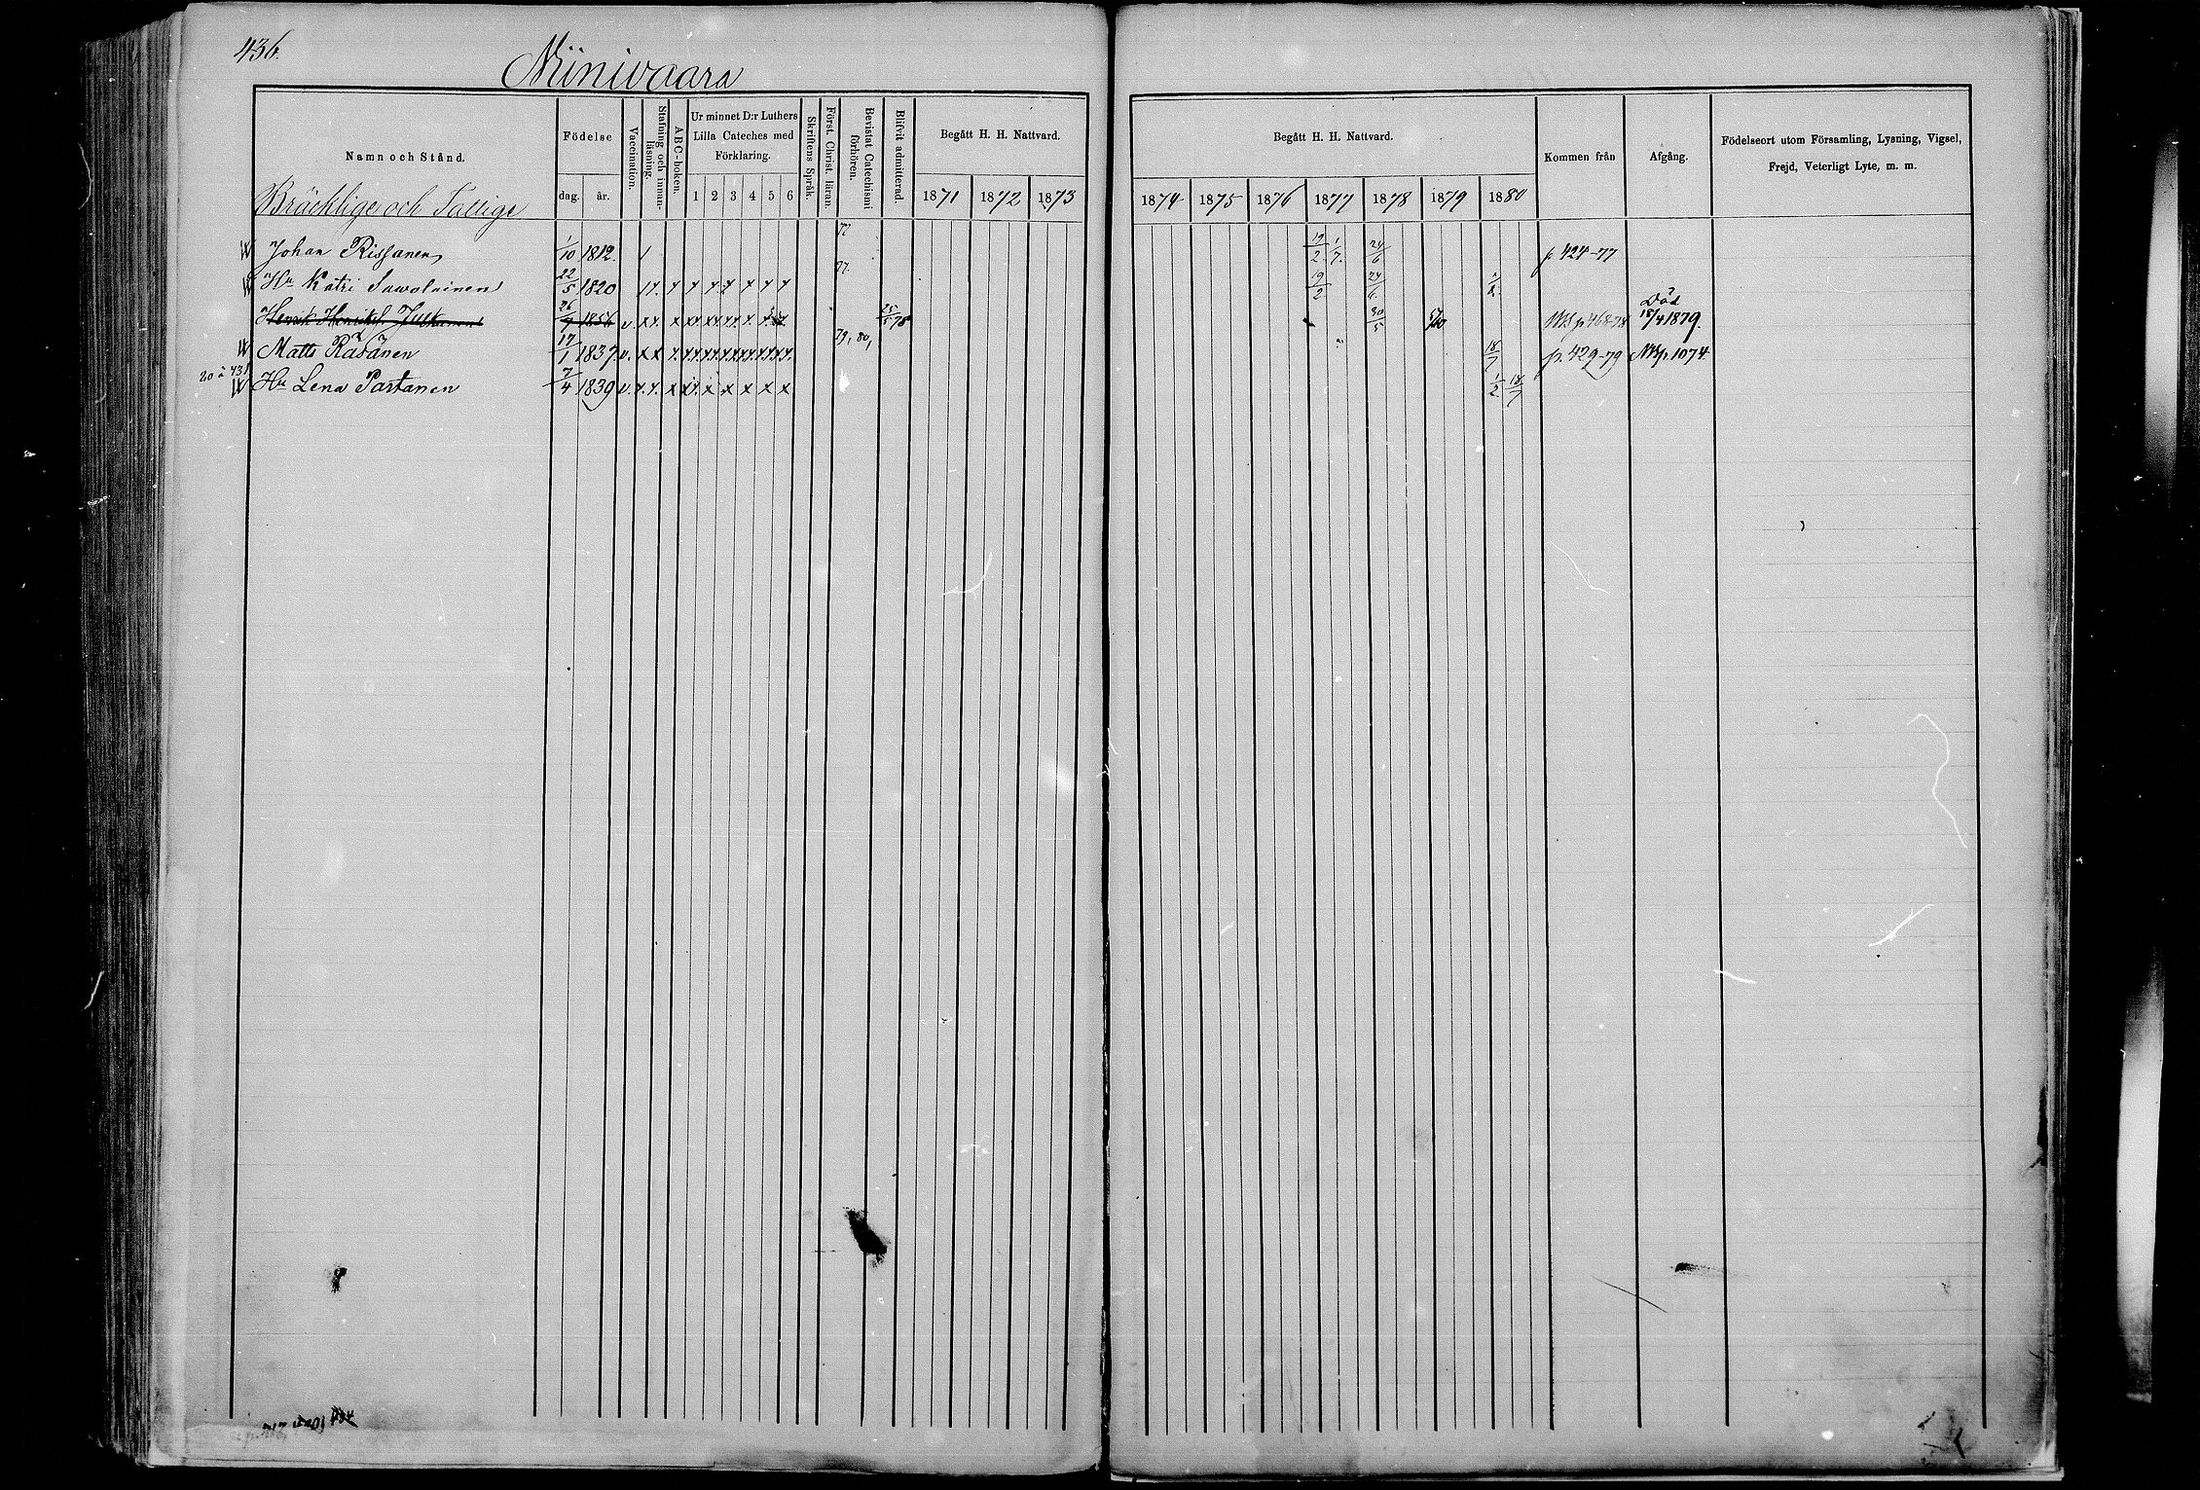 436.
Niinivaara
Namn och Stånd.
Födelse
dag. år.
Vaccination.
Stafning och innan-
läsning.
ABC-boken.
Ur minnet D:r Luthers
Lilla Cateches med
Förklaring.
1 2 3 4 5 6
Skriftens Språk.
Först. Christ. läran.
Bevistat Catechismi
förhören.
Blifvit admitterad.
Begått H. H. Nattvard.
1871 1872 1873
Begått H. H. Nattvard.
1874 1875 1876 1877 1878 1879 1880
Kommen från
Afgång.
Födelseort utom Församling, Lysning, Vigsel,
Frejd, Veterligt Lyte, m. m.
Bräcklige och Fattige
Johan Rissanen 1/10 1812. 77 19/2 1/7. 24/6 p 424-77
Hu Katri Sawolainen 22/5 1820 77. 19/2 24/6.
Henrik Henriks. 26 1856 v. 25/5 78 30/5 468-78 Död 18/4 1879.
Matts Räsänen 17/1 1837. v. 79, 80, 18/7 p. 429-79 1074
Hu Lena Partanen 7/4 1839 v. 1/2 18/7